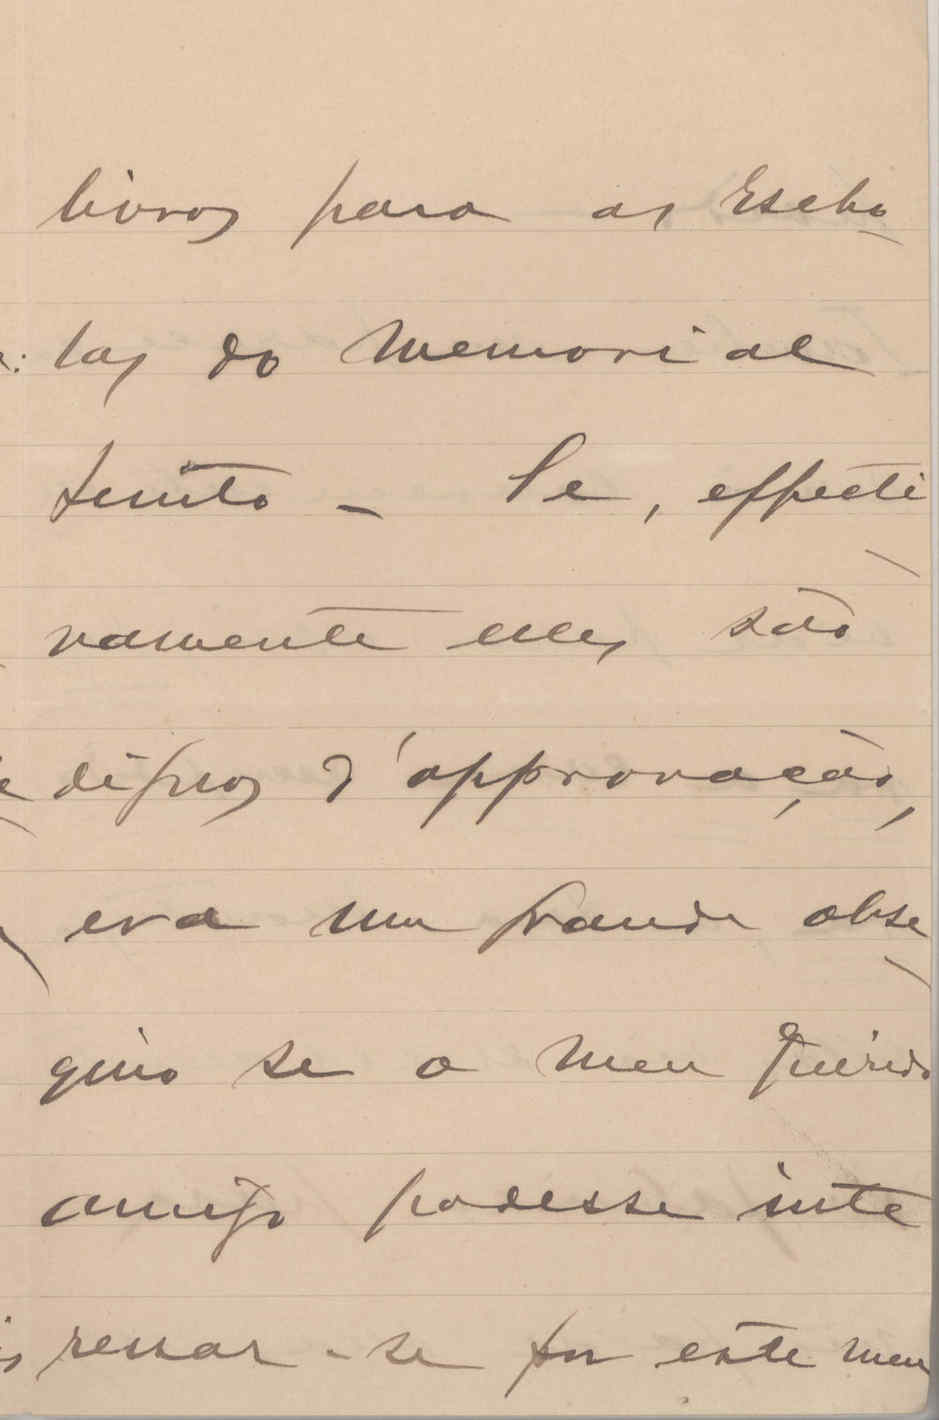 livros para as Escho-
las do Memorial
junto - Se, effecti-
vamente elles são
dignos d'approvação,
era um grande obse-
quio se o meu querido
amigo podesse inte
ressar-se por este meu